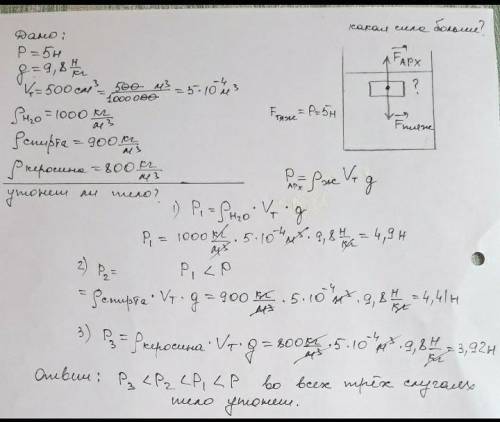 Дано:
какая сила больше?
P = 5н
g = 9,8 н/кг
Vт = 500 см³ = 500 м³/1000000 = 5·10⁻⁴ м³
ρH₂O = 1000 кг/м³
ρспирта = 900 кг/м³
ρкеросина = 800 кг/м³
утонет ли тело?
Fарх
?
Fтяж = P = 5н
Fтяж
Pарх = ρж Vт g
1) P₁ = ρH₂O · Vт · g
P₁ = 1000 кг/м³ · 5·10⁻⁴ м³ · 9,8 н/кг = 4,9 н
2) P₂ = P₁ < P
= ρспирта · Vт · g = 900 кг/м³ · 5·10⁻⁴ м³ · 9,8 н/кг = 4,41 н
3) P₃ = ρкеросина · Vт · g = 800 кг/м³ · 5·10⁻⁴ м³ · 9,8 н/кг = 3,92 н
Ответ: P₃ < P₂ < P₁ < P во всех трёх случаях
тело утонет.